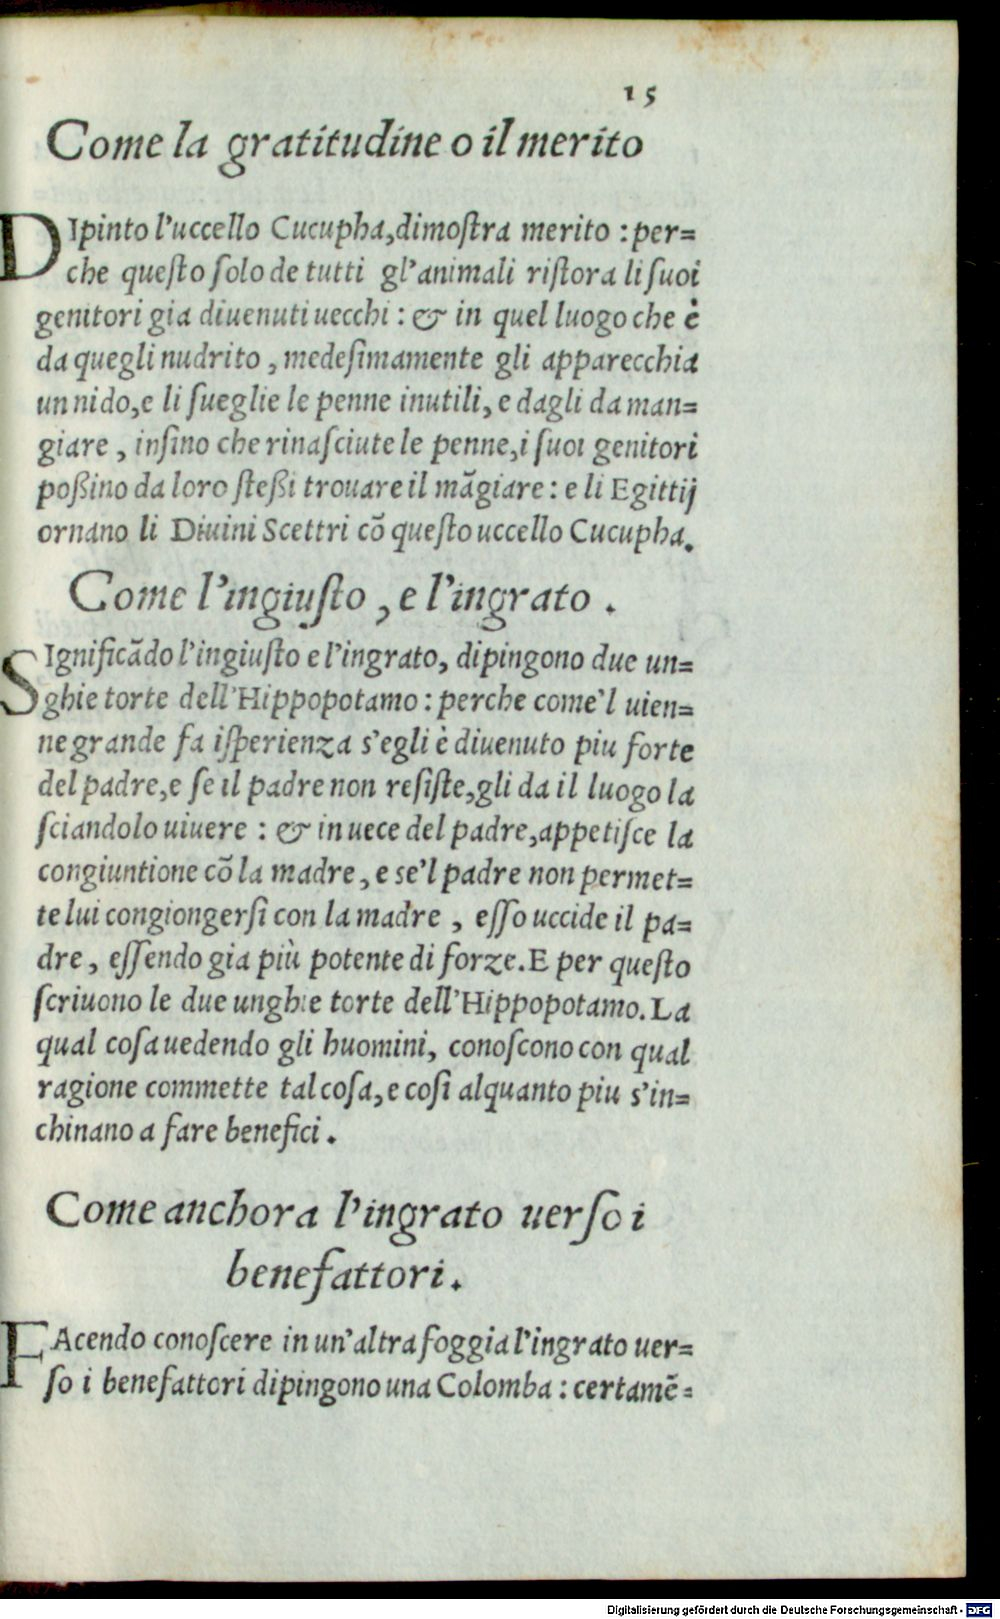 15
Come la gratitudine o il merito
DIpinto l'uccello Cucupha, dimoſtra merito : per=
che queſto ſolo de tutti gl'animali riſtora li ſuoi
genitori gia diuenuti uecchi : & in quel luogo che è
da quegli nudrito , medeſimamente gli apparecchia
un nido, e li ſueglie le penne inutili, e dagli da man=
giare , inſino che rinaſciute le penne, i ſuoi genitori
poßino da loro ſteßi trouare il mãgiare : e li Egittij
ornano li Diuini Scettri cõ queſto uccello Cucupha.
Come l'ingiuſto , e l'ingrato .
SIgnificãdo l'ingiuſto e l'ingrato, dipingono due un=
ghie torte dell'Hippopotamo : perche come'l uien=
ne grande fa iſperienza s'egli è diuenuto piu forte
del padre, e ſe il padre non reſiſte, gli da il luogo la
ſciandolo uiuere : & in uece del padre, appetiſce la
congiuntione cõ la madre , e se'l padre non permet=
te lui congiongerſi con la madre , eſſo uccide il pa=
dre , eſſendo gia più potente di forze. E per queſto
ſcriuono le due unghie torte dell'Hippopotamo. La
qual coſa uedendo gli huomini, conoſcono con qual
ragione commette tal coſa, e coſi alquanto piu s'in=
chinano a fare benefici .
Come anchora l'ingrato uerſo i
benefattori .
FAcendo conoſcere in un'altra foggia l'ingrato uer=
ſo i benefattori dipingono una Colomba : certamẽ=
Digitalisierung gefördert durch die Deutsche Forschungsgemeinschaft - DFG